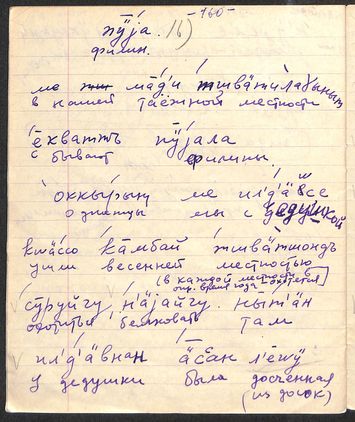 -160-
пӱ̄jа. 16)
филин.
ме ма̄д'и тшвӓтшiлаɣынын
в нашей таёжной местности
е̄кватть пӱ̄jала
с бывают филины.
оккыры̄ң ме ил'д'ӓ се
однажды мы с дедушкой
квӓссо ка̄мбай тшвӓтшондъ
ушли весенней местностью
(в каждой местности в
опр. время года охотятся)
сӯруйгу н'а̄jайгу ны̄т'ӓн
охотиться белковать там
ил'д'ӓвнан ӓсӓн л'ёӣ
у дедушки была досчённая
(из досок)